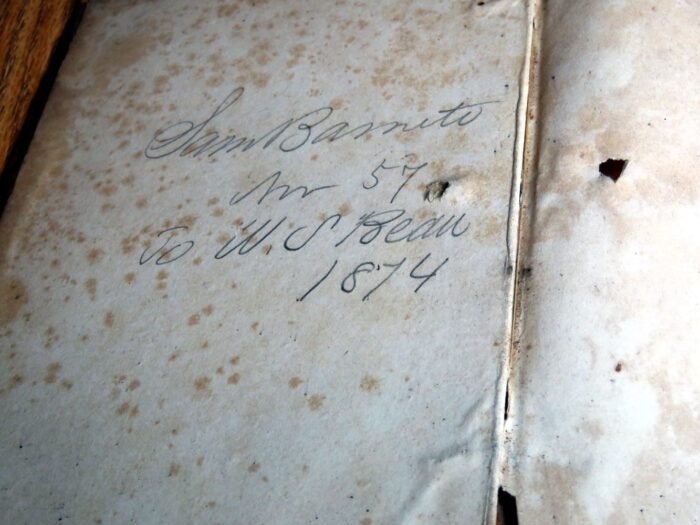 Sam Barnett
In 57
To W. S Beau
1874